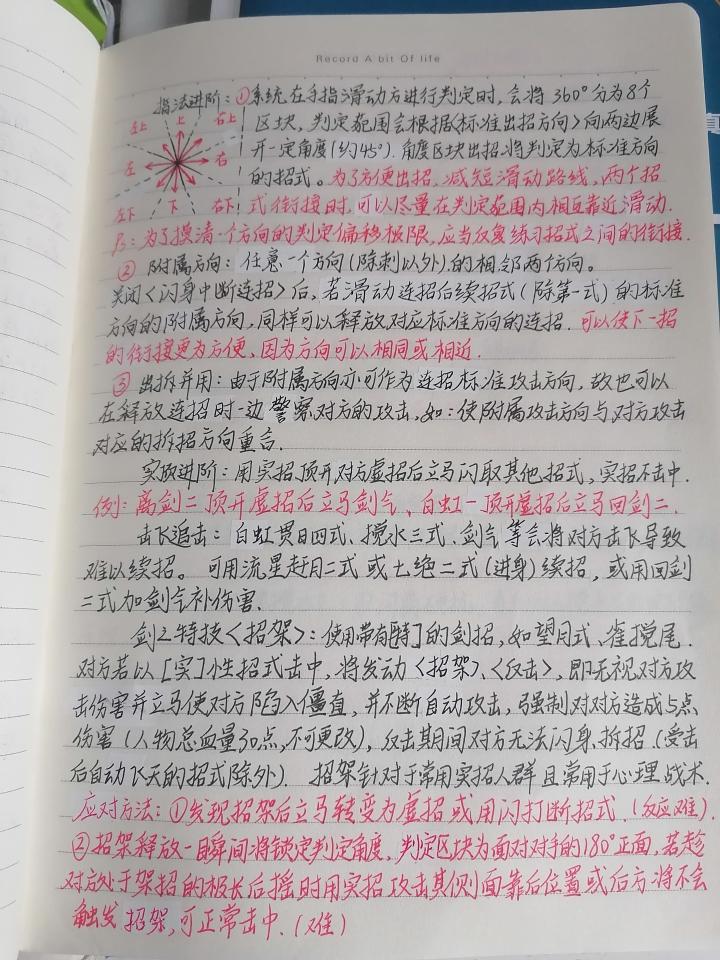 Record A bit Of life
指法进阶：①系统在手指滑动方进行判定时，会将360°分为8个
左上 上 右上
区块，判定范围会根据<标准出招方向>向两边展
左 右
开一定角度(约45°).角度区块出招将判定为标准方向
的招式。为了方便出招，减短滑动路线，两个招
左下 下 右下
式衔接时，可以尽量在判定范围内相互靠近滑动.
Ps：为了摸清一个方向的判定偏移极限，应当反复练习招式之间的衔接.
② 附属方向：任意一个方向(除刺以外)的相邻两个方向。
关闭<闪身中断连招>后，若滑动连招后续招式(除第一式)的标准
方向的附属方向，同样可以释放对应标准方向的连招.可以使下一招
的衔接更为方便，因为方向可以相同或相近.
③ 出拆并用：由于附属方向亦可作为连招标准攻击方向，故也可以
在释放连招时一边警察对方的攻击，如：使附属攻击方向与对方攻击
对应的拆招方向重合.
实战进阶：用实招顶开对方虚招后立马闪取其他招式，实招不击中.
例：离剑二顶开虚招后立马剑气、白虹一顶开虚招后立马回剑二.
击飞追击：白虹贯日四式、搅水三式、剑气等会将对方击飞导致
难以续招。可用流星赶月二式或七绝二式(进身)续招，或用回剑
二式加剑气补伤害.
剑之特技<招架>：使用带有[特]的剑招，如望月式、雀搅尾.
对方若以[实]性招式击中，将发动<招架>、<反击>，即无视对方攻
击伤害并立马使对方陷入僵直，并不断自动攻击，强制对对方造成5点
伤害(人物总血量30点，不可更改)，反击期间对方无法闪身、拆招(受击
后自动飞天的招式除外). 招架针对于常用实招人群且常用于心理战术.
应对方法：①发现招架后立马转变为虚招或用闪打断招式.(反应难).
②招架释放一瞬间将锁定判定角度，判定区块为面对对手的180°正面，若趁
对方处于架招的极长后摇时用实招攻击其侧面靠后位置或后方将不会
触发招架，可正常击中.(难)